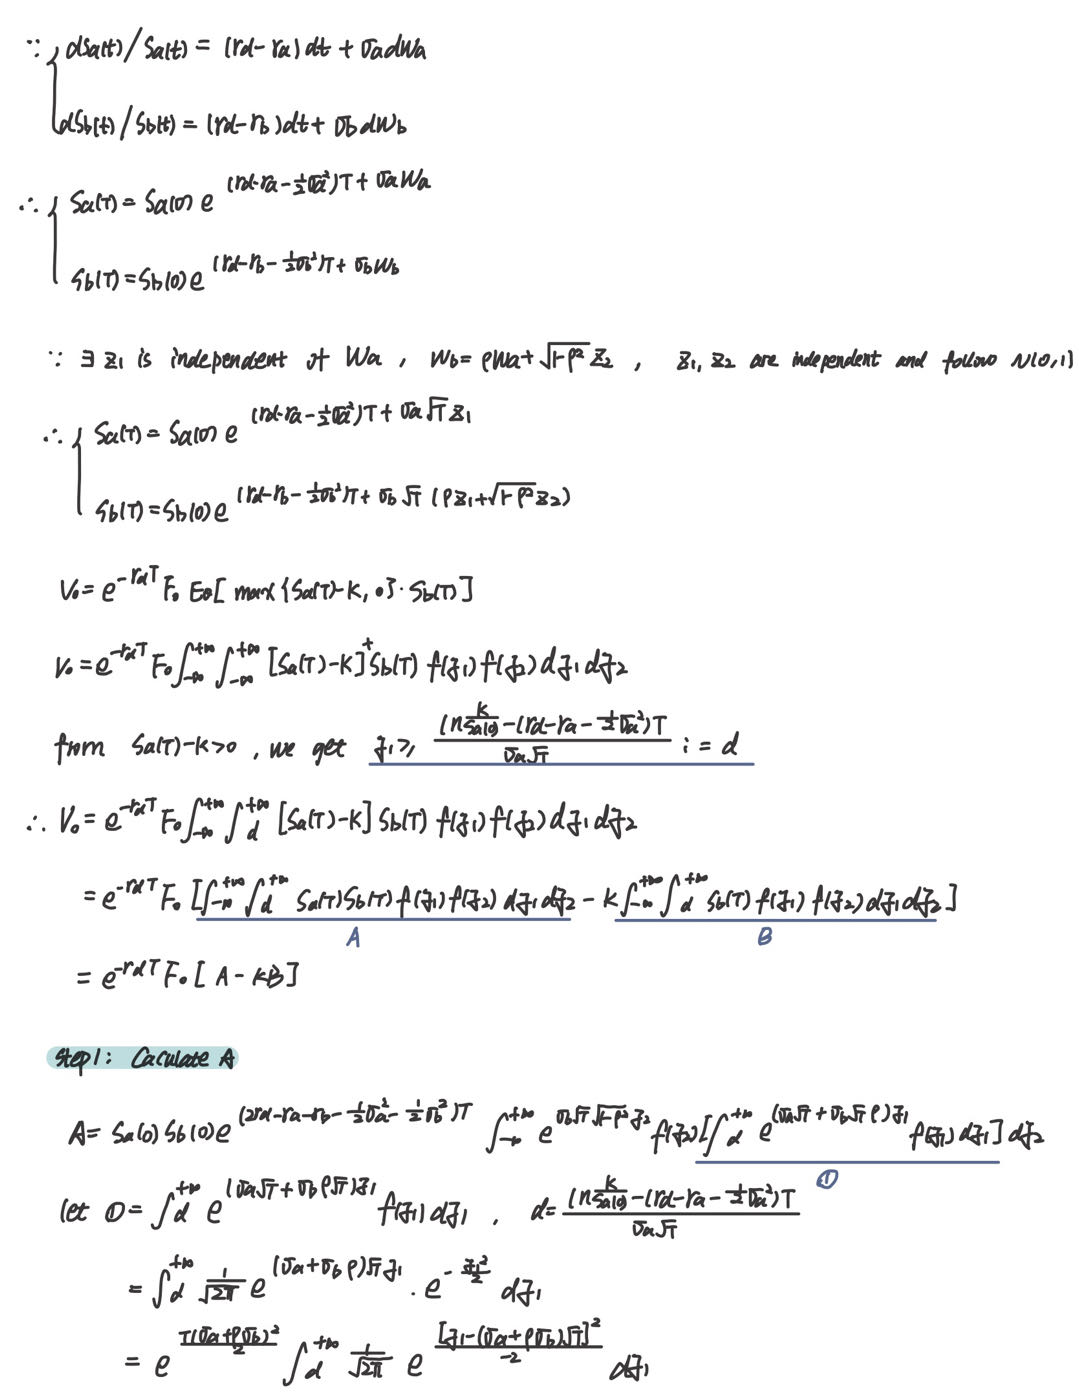 ∵ { dSa(t)/Sa(t) = (rd-ra)dt + σadWa
dSb(t)/Sb(t) = (rd-rb)dt + σbdWb
∴ { Sa(T) = Sa(0) e^{(rd-ra-½σa²)T + σaWa}
Sb(T) = Sb(0) e^{(rd-rb-½σb²)T + σbWb}
∵ ∃ z1 is independent of Wa , Wb = ρWa + √(1-ρ²) Z2 , z1, z2 are independent and follows N(0,1)
∴ { Sa(T) = Sa(0) e^{(rd-ra-½σa²)T + σa√T z1}
Sb(T) = Sb(0) e^{(rd-rb-½σb²)T + σb√T (ρz1+√(1-ρ²) z2)}
V0 = e^{-rdT} F0 EQ[ max{Sa(T)-K, 0}·Sb(T) ]
V0 = e^{-rdT} F0 ∫_{-∞}^{+∞} ∫_{-∞}^{+∞} [Sa(T)-K]^+ Sb(T) f(z1) f(z2) dz1 dz2
from Sa(T)-K>0 , we get z1 ≥ (ln K/Sa(0) - (rd-ra-½σa²)T) / (σa√T) := d
∴ V0 = e^{-rdT} F0 ∫_{-∞}^{+∞} ∫_d^{+∞} [Sa(T)-K] Sb(T) f(z1) f(z2) dz1 dz2
= e^{-rdT} F0 [∫_{-∞}^{+∞} ∫_d^{+∞} Sa(T)Sb(T) f(z1) f(z2) dz1 dz2 - K ∫_{-∞}^{+∞} ∫_d^{+∞} Sb(T) f(z1) f(z2) dz1 dz2]
A B
= e^{-rdT} F0 [ A - KB ]
Step1: Caculate A
A = Sa(0) Sb(0) e^{(2rd-ra-rb-½σa²-½σb²)T} ∫_{-∞}^{+∞} e^{σb√T√(1-ρ²) z2} f(z2) [∫_d^{+∞} e^{(σa√T+σb√Tρ)z1} f(z1) dz1] dz2
①
let ① = ∫_d^{+∞} e^{(σa√T+σbρ√T)z1} f(z1) dz1 , d = (ln K/Sa(0) - (rd-ra-½σa²)T) / (σa√T)
= ∫_d^{+∞} 1/√(2π) e^{(σa+σbρ)√T z1} · e^{-z1²/2} dz1
= e^{T(σa+ρσb)²/2} ∫_d^{+∞} 1/√(2π) e^{[z1-(σa+ρσb)√T]²/-2} dz1